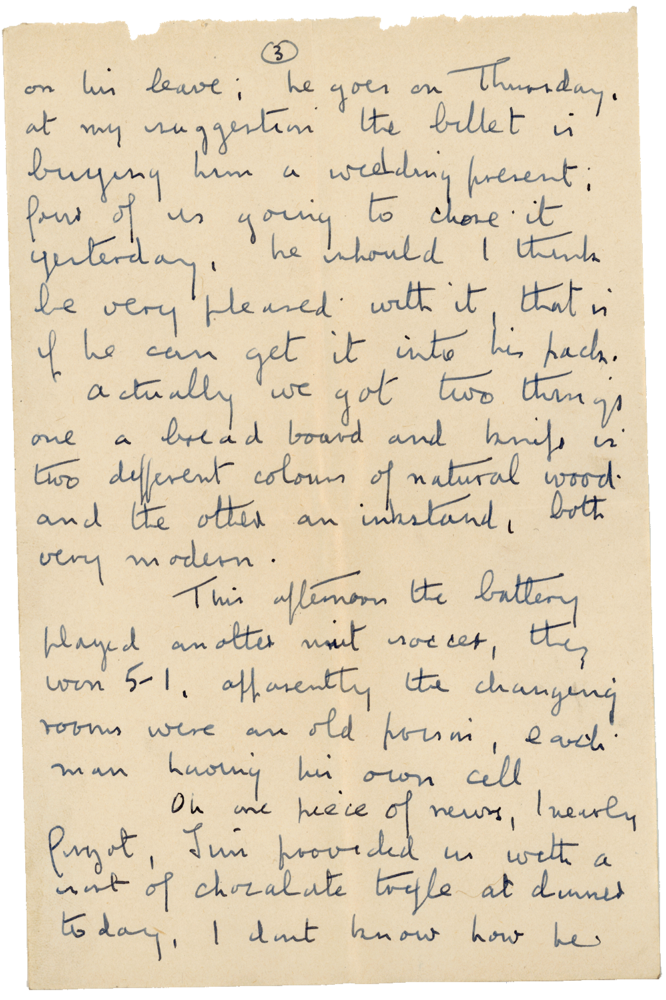 3
on his leave; he goes on Thursday.
at my suggestion the billet is
buying him a wedding present;
four of us going to chose it
yesterday, he should I think
be very pleased with it, that is
if he can get it into his pack.
actually we got two things
one a bread board and knife in
two different colours of natural wood
and the other an inkstand, both
very modern.
This afternoon the battery
played another unit soccer, they
won 5-1, apparently the changing
rooms were an old prison, each
man having his own cell
Oh one piece of news, I nearly
forgot, Jim provided us with a
sort of chocalate trifle at dinner
today, I dont know how he